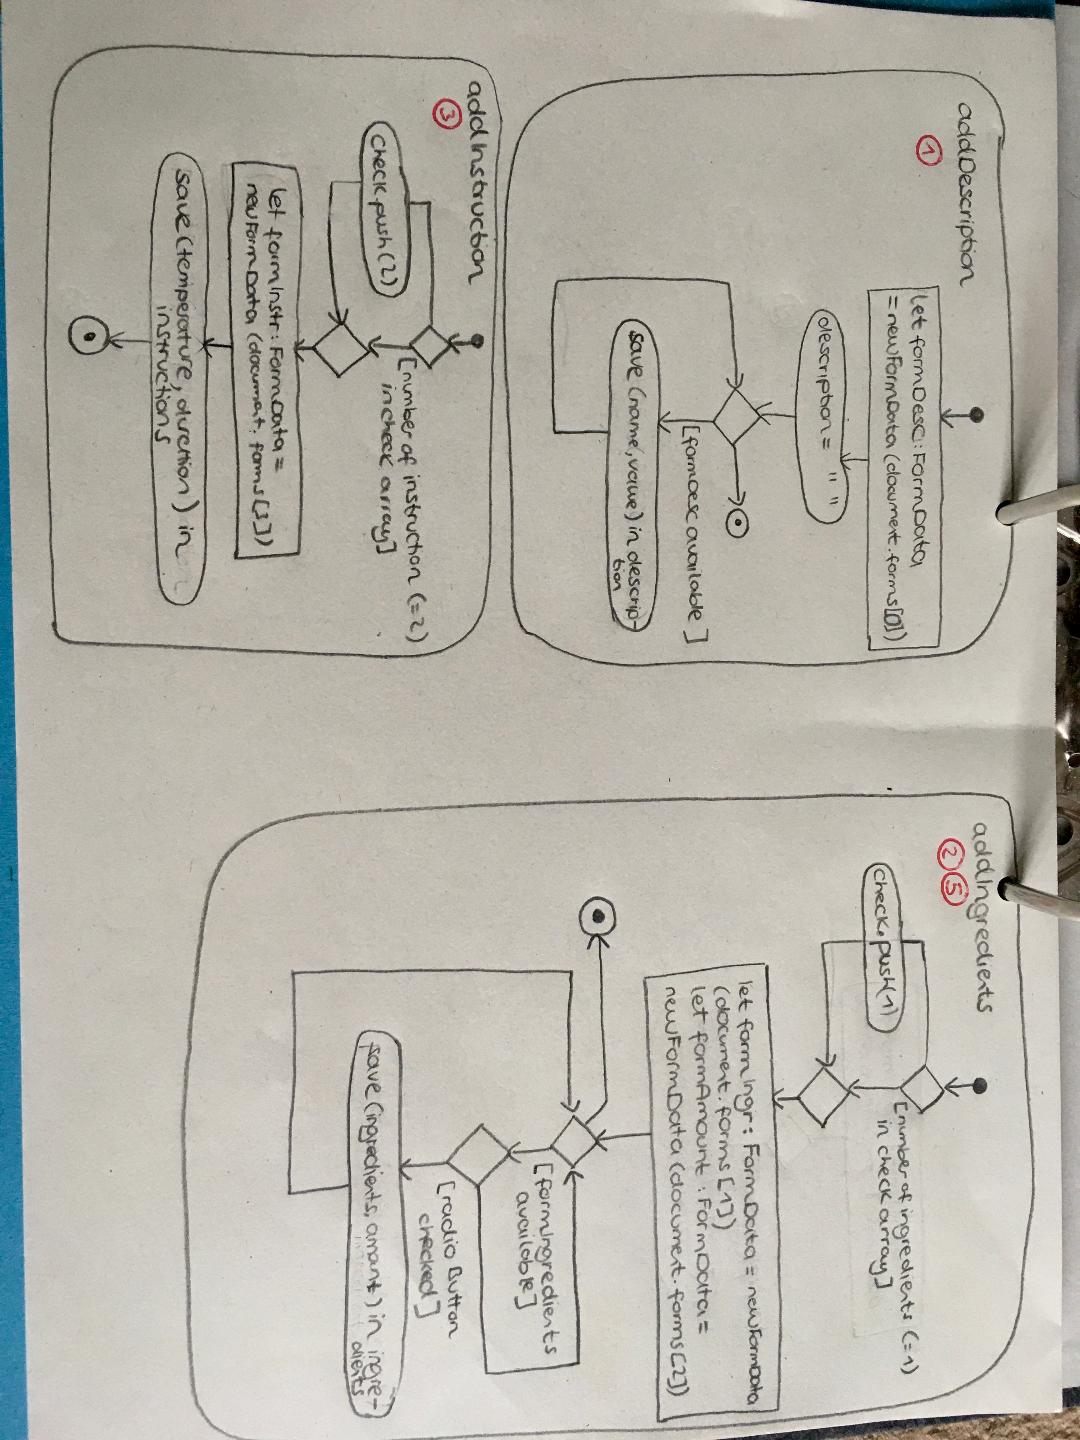 addDescription
1
let formDesc:FormData
=newFormData(document.forms[0])
description= " "
[formDesc available ]
save (name,value) in descrip-
tion
addInstruction
3
[number of instruction (=2)
in check array]
check.push(2)
let formInstr: FormData =
newFormData (document. forms [3])
save (temperature, duration) in
instructions
addIngredients
2 5
[number of ingredients (=1)
in check array]
check.push(1)
let formIngr: FormData = newFormData
(document.forms [1])
let formAmount : FormData =
newFormData (document.forms [2])
[formIngredients
available]
[radio Button
checked]
save (ingredients, amant) in ingre-
dients